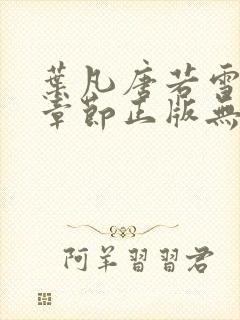 葉凡唐若雪
章節正版無
阿羊習習君